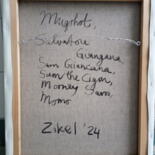 Mugshot,
Salvatore
Giangana
Sam Giancana,
Sam the Cigar,
Mooney Sam,
Momo
Zikel '24